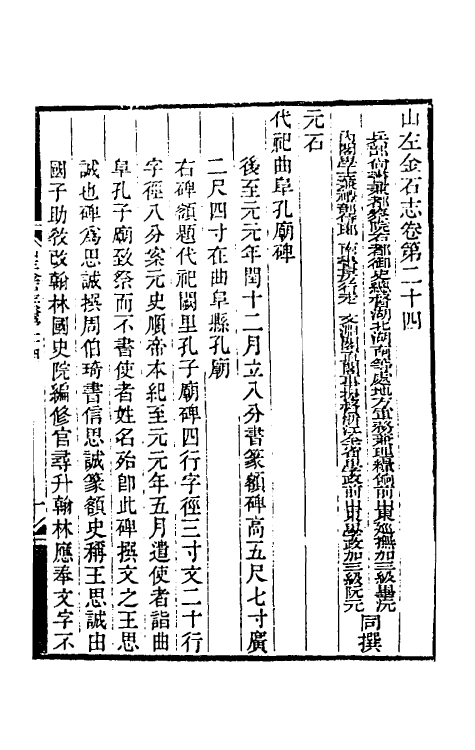 山左金石志卷第二十四
兵部尚書兼都察院右都御史總督湖北湖南等處地方軍務兼理糧餉前山東巡撫加三級畢沅
內閣學士兼禮部侍郎南書房行走文淵閣直閣事提督浙江全省學政前山東學政加三級阮元
同撰
元石
代祀曲阜孔廟碑
後至元元年閏十二月立八分書篆額碑高五尺七寸廣
二尺四寸在曲阜縣孔廟
右碑額題代祀闕里孔子廟碑四行字徑三寸文二十行
字徑八分案元史順帝本紀至元元年五月遣使者詣曲
阜孔子廟致祭而不書使者姓名殆卽此碑撰文之王思
誠也碑為思誠撰周伯琦書信思誠篆額史稱王思誠由
國子助敎改翰林國史院編修官尋升翰林應奉文字不